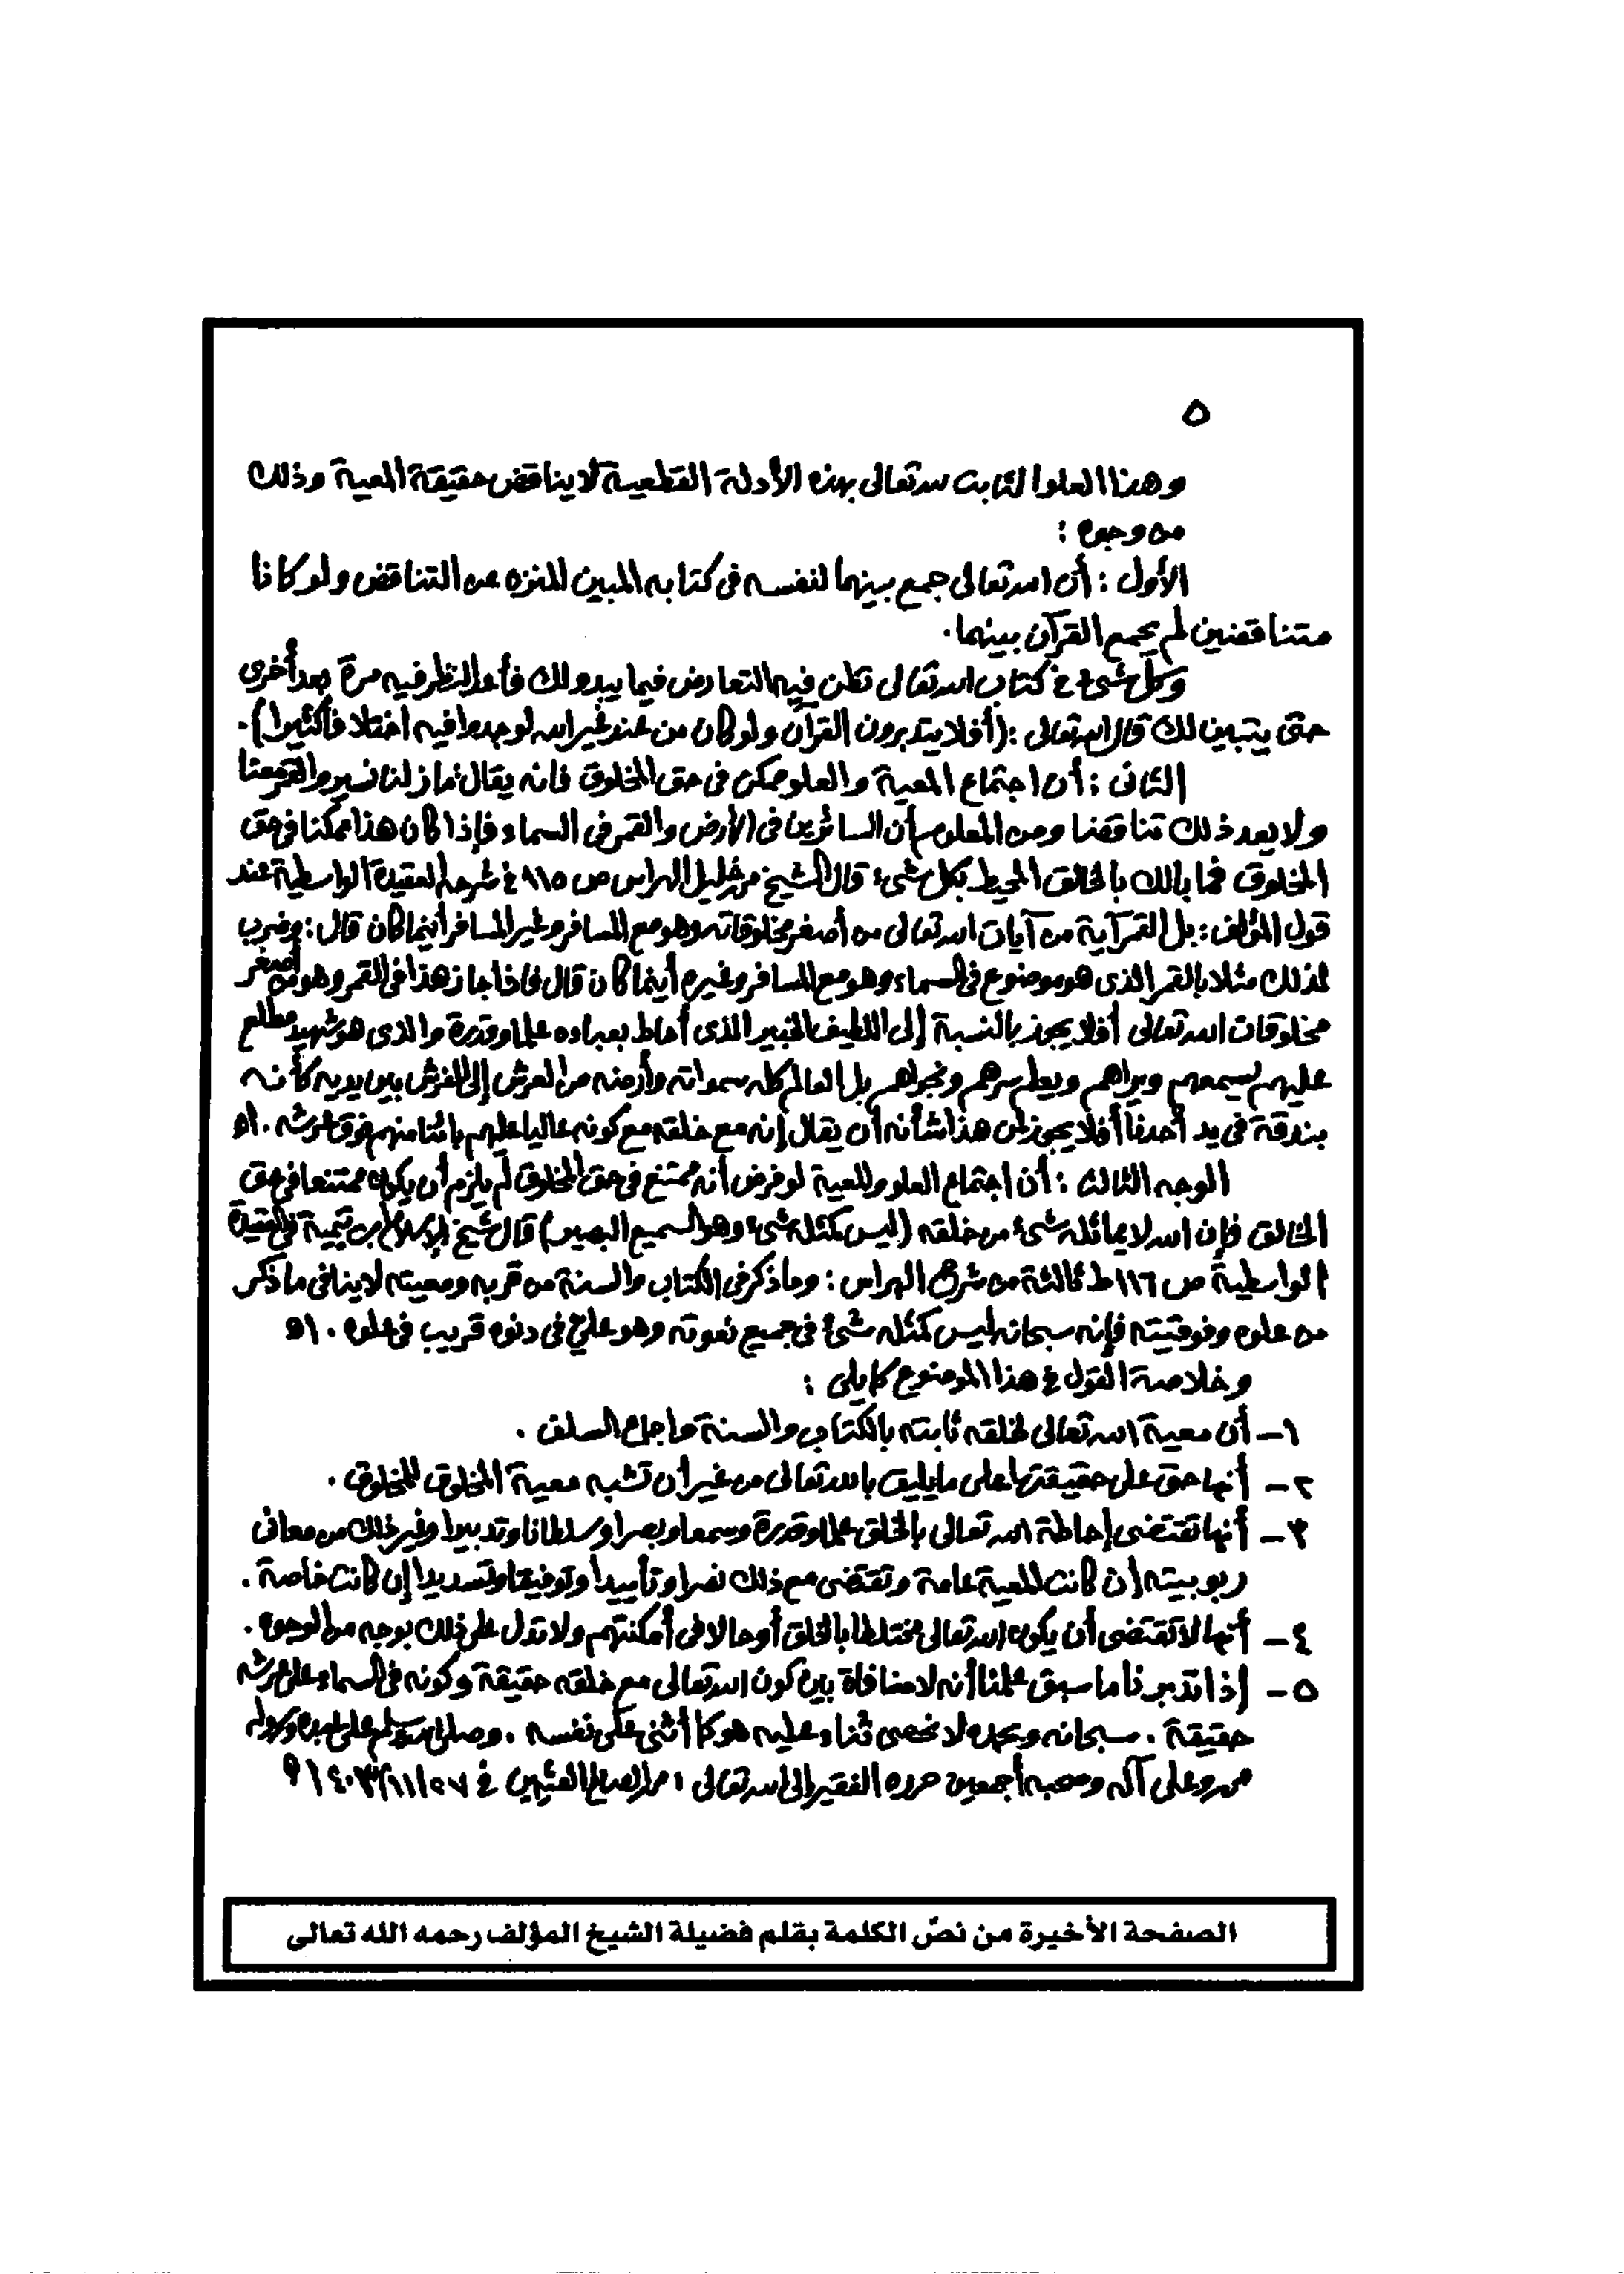 ٥
وهذا العلو الثابت لله تعالى بهذه الأدلة القطعية لا يناقض حقيقة المعية وذلك
من وجوه :
الأول : أن الله تعالى جمع بينهما لنفسه فى كتابه المبين المنزه عن التناقض ولو كانا
متناقضين لم يجمع القرآن بينهما .
وكل شىء فى كتاب الله تعالى تظن فيه التعارض فيما يبدو لك فأعد النظر فيه مرة بعد أخرى
حتى يتبين لك قال الله تعالى : (أفلا يتدبرون القرآن ولو كان من عند غير الله لوجدوا فيه اختلافا كثيرا) .
الثانى : أن اجتماع المعية والعلو ممكن فى حق المخلوق فانه يقال ما زلنا نسير والقمر معنا
ولا يعد ذلك تناقضا ومن المعلوم أن السائرين فى الأرض والقمر فى السماء فإذا كان هذا ممكنا فى حق
المخلوق فما بالك بالخالق المحيط بكل شىء قال الشيخ محمد خليل الهراس ص ١١٥ فى شرحه العقيدة الواسطية عند
قول المؤلف : بل القمر آية من آيات الله تعالى من أصغر مخلوقاته وهو مع المسافر وغير المسافر أينما كان قال : وضرب
لذلك مثلا بالقمر الذى هو موضوع فى السماء وهو مع المسافر وغيره أينما كان قال فاذا جاز هذا فى القمر وهو من أصغر
مخلوقات الله تعالى أفلا يجوز بالنسبة إلى اللطيف الخبير الذى أحاط بعباده علما وقدرة والذى هو شهيد مطلع
عليهم يسمعهم ويراهم ويعلم سرهم ونجواهم بل العالم كله سمواته وأرضه من العرش إلى الفرش بين يديه كأنه
بندقة فى يد أحدنا أفلا يجوز لمن هذا شأنه أن يقال إنه مع خلقه مع كونه عاليا عليهم بائنا منهم فوق عرشه . اه
الوجه الثالث : أن اجتماع العلو والمعية لو فرض أنه ممتنع فى حق المخلوق لم يلزم أن يكون ممتنعا فى حق
الخالق فإن الله لا يماثله شىء من خلقه (ليس كمثله شىء وهو السميع البصير) قال شيخ الإسلام ابن تيمية فى العقيدة
الواسطية ص ١١٦ ط ثالثة من شرح الهراس : وما ذكر فى الكتاب والسنة من قربه ومعيته لا ينافى ما ذكر
من علوه وفوقيته فإنه سبحانه ليس كمثله شىء فى جميع نعوته وهو على فى دنوه قريب فى علوه . اه
وخلاصة القول فى هذا الموضوع كما يلى :
١ – أن معية الله تعالى لخلقه ثابتة بالكتاب والسنة واجماع السلف .
٢ – أنها حق على حقيقتها على ما يليق بالله تعالى من غير أن تشبه معية المخلوق للمخلوق .
٣ – أنها تقتضى إحاطة الله تعالى بالخلق علما وقدرة وسمعا وبصرا وسلطانا وتدبيرا وغير ذلك من معانى
ربوبيته إن كانت المعية عامة وتقتضى مع ذلك نصرا وتأييدا وتوفيقا وتسديدا إن كانت خاصة .
٤ – أنها لا تقتضى أن يكون الله تعالى مختلطا بالخلق أو حالا فى أمكنتهم ولا تدل على ذلك بوجه من الوجوه .
٥ – إذا تدبرنا ما سبق علمنا أنه لا منافاة بين كون الله تعالى مع خلقه حقيقة وكونه فى السماء على عرشه
حقيقة . سبحانه وبحمده لا نحصى ثناء عليه هو كما أثنى على نفسه . وصلى الله وسلم على عبده ورسوله
محمد وعلى آله وصحبه أجمعين حرره الفقير إلى الله تعالى : محمد الصالح العثيمين فى ٢٧/١١/١٤٠٣ ه
الصفحة الأخيرة من نصّ الكلمة بقلم فضيلة الشيخ المؤلف رحمه الله تعالى